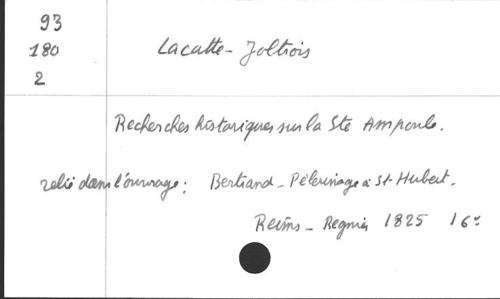 93
180
2
Lacatte-Joltrois
Recherches historiques sur la Ste Ampoule.
relié dans l'ouvrage : Bertrand - Pèlerinage à St-Hubert.
Reims - Regnier 1825 16°